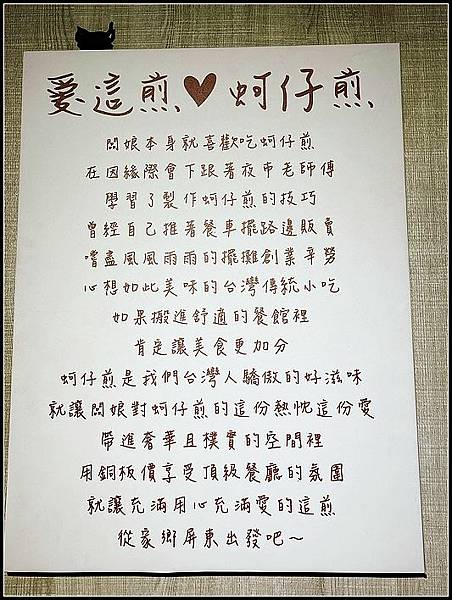 愛這煎♥蚵仔煎
闆娘本身就喜歡吃蚵仔煎
在因緣際會下跟著夜市老師傅
學習了製作蚵仔煎的技巧
曾經自己推著餐車擺路邊販賣
嚐盡風風雨雨的擺攤創業辛勞
心想如此美味的台灣傳統小吃
如果搬進舒適的餐館裡
肯定讓美食更加分
蚵仔煎是我們台灣人驕傲的好滋味
就讓闆娘對蚵仔煎的這份熱忱這份愛
帶進奢華且樸實的空間裡
用銅板價享受頂級餐廳的氛圍
就讓充滿用心充滿愛的這煎
從家鄉屏東出發吧～